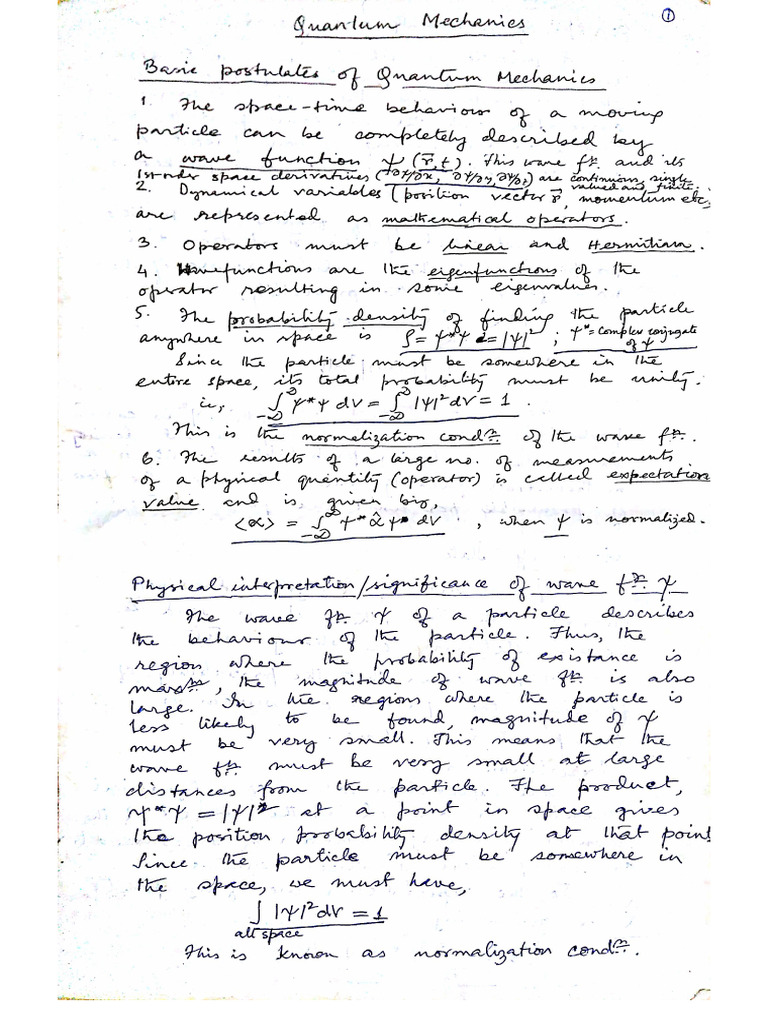 Quantum Mechanics
①
Basic postulates of Quantum Mechanics
1. The space-time behaviour of a moving
particle can be completely described by
a wave function ψ(r⃗,t). This wave fⁿ. and its
1st order space derivatives (∂ψ/∂x, ∂ψ/∂y, ∂ψ/∂z) are continuous, single
valued and finite.
2. Dynamical variables (position vector r⃗, momentum etc,
are represented as mathematical operators.
3. Operators must be linear and Hermitian.
4. Wavefunctions are the eigenfunctions of the
operator resulting in some eigenvalues.
5. The probability density of finding the particle
anywhere in space is ρ = ψ*ψ = |ψ|² ; ψ* = complex conjugate
of ψ
Since the particle must be somewhere in the
entire space, its total probability must be unity.
ie, ∫_{-∞}^{∞} ψ*ψ dV = ∫_{-∞}^{∞} |ψ|² dV = 1.
This is the normalization condⁿ. of the wave fⁿ.
6. The results of a large no. of measurements
of a physical quantity (operator) is called expectation
value and is given by,
<α> = ∫_{-∞}^{∞} ψ* α̂ ψ dV , when ψ is normalized.
Physical interpretation/significance of wave fⁿ. ψ
The wave fⁿ. ψ of a particle describes
the behaviour of the particle. Thus, the
region where the probability of existance is
maxᵐ, the magnitude of wave fⁿ. is also
large. In the regions where the particle is
less likely to be found, magnitude of ψ
must be very small. This means that the
wave fⁿ. must be very small at large
distances from the particle. The product,
ψ*ψ = |ψ|² at a point in space gives
the position probability density at that point
Since the particle must be somewhere in
the space, we must have,
∫ |ψ|² dV = 1
all space
This is known as normalization condⁿ.